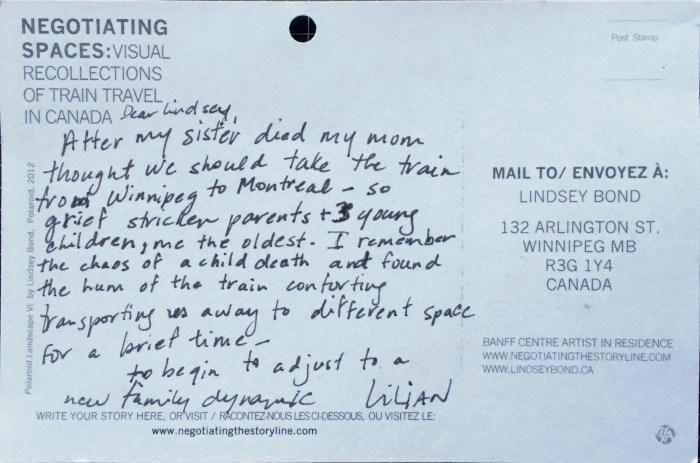 NEGOTIATING
SPACES: VISUAL
RECOLLECTIONS
OF TRAIN TRAVEL
IN CANADA
Dear Lindsey,
After my sister died my mom
thought we should take the train
from Winnipeg to Montreal - so
grief stricken parents + 3 young
children, me the oldest. I remember
the chaos of a child death and found
the hum of the train conforting
transporting us away to different space
for a brief time -
to begin to adjust to a
new family dynamic LILIAN
WRITE YOUR STORY HERE, OR VISIT / RACONTEZ-NOUS LES CI-DESSOUS, OU VISITEZ LE:
www.negotiatingthestoryline.com
Polaroid Landscape VI by Lindsey Bond, Polaroid, 2012
Post Stamp
MAIL TO/ ENVOYEZ À:
LINDSEY BOND
132 ARLINGTON ST.
WINNIPEG MB
R3G 1Y4
CANADA
BANFF CENTRE ARTIST IN RESIDENCE
WWW.NEGOTIATINGTHESTORYLINE.COM
WWW.LINDSEYBOND.CA